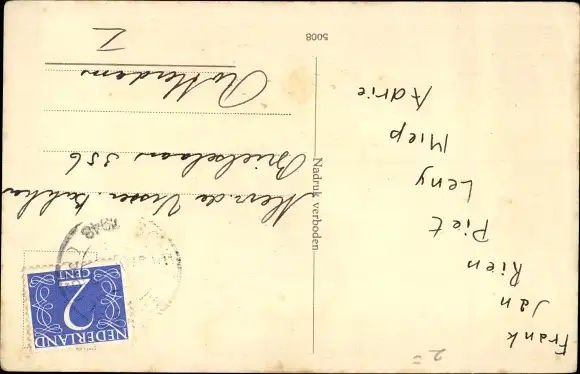 Frank
Jan
Rien
Piet
Leny
Miep
Adrie
Nadruk verboden
5008
NEDERLAND
2
CENT
1948
Mevr. de Visser
Brielselaan 356
Rotterdam
Z
2=